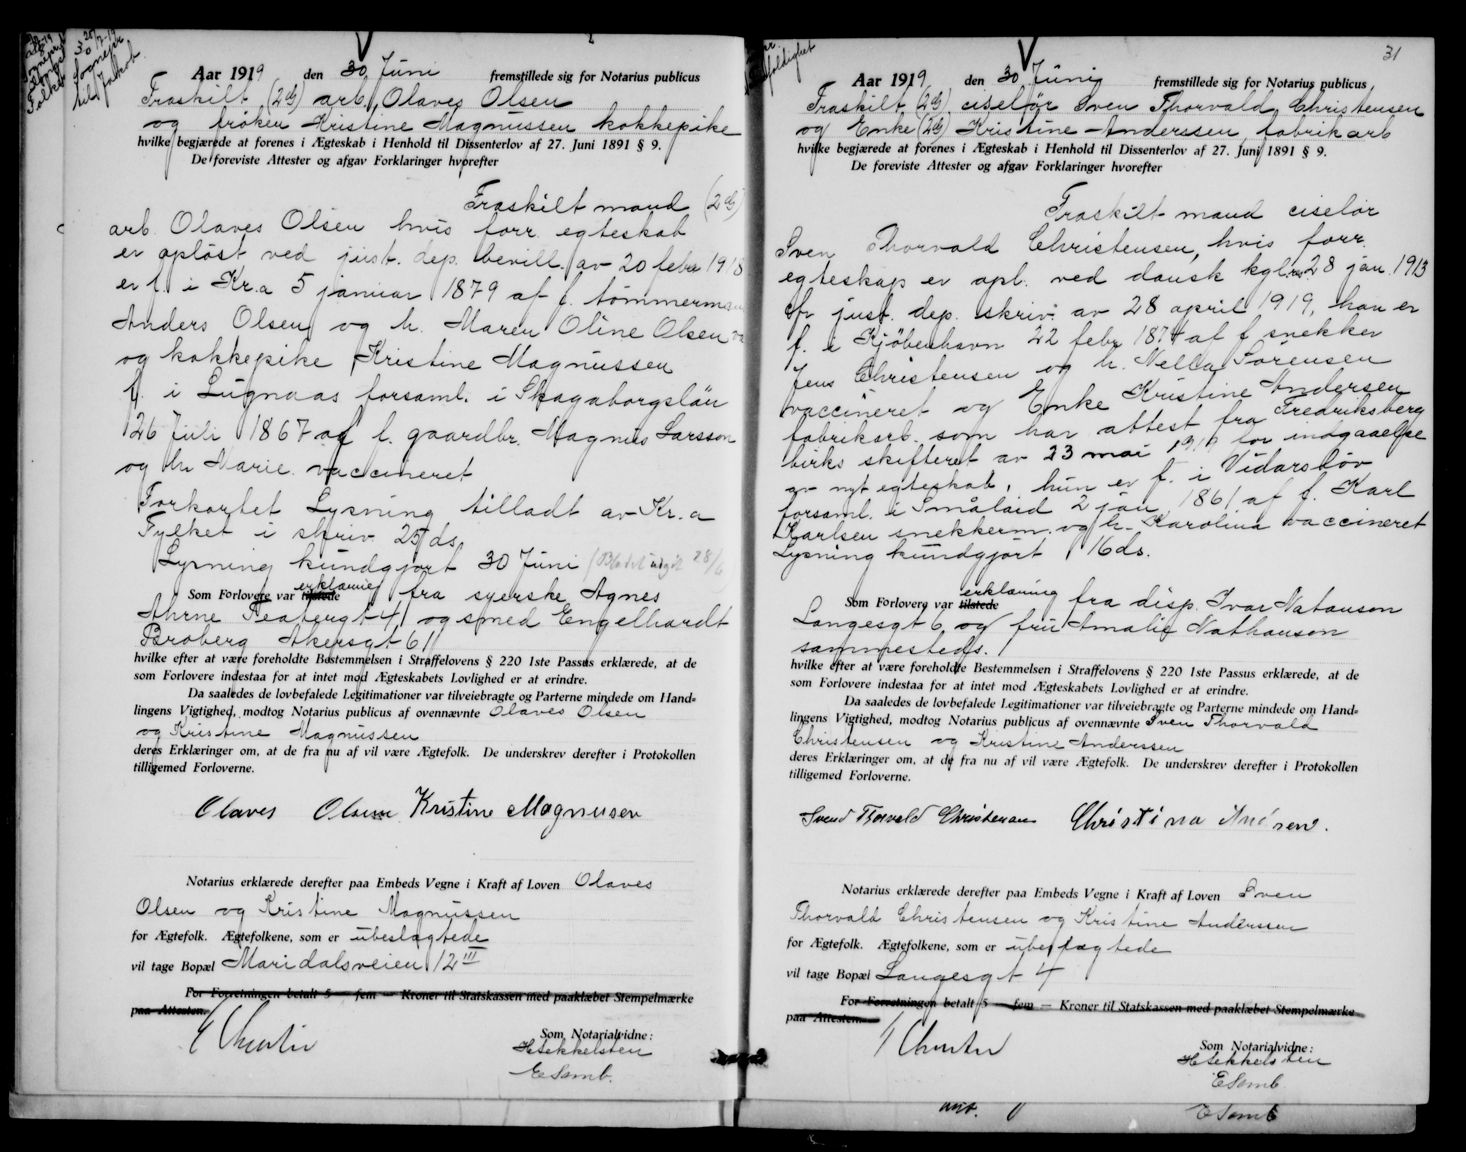 Aar 1919 den 30 Juni fremstillede sig for Notarius publicus
Fraskilt (2 ds) arb. Olaves Olsen
og frøken Kristine Magnussen kokkepike
hvilke begjærede at forenes i Ægteskab i Henhold til Dissenterlov af 27. Juni 1891 § 9.
De foreviste Attester og afgav Forklaringer hvorefter
Fraskilt mand
arb. Olaves Olsen hvis forr. egteskab
er opløst ved just. dep. bevill. av 20 febr 1918
er f. i Kr.a 5 januar 1879 af f. tømmermand
Anders Olsen og h. Maren Oline Olsen
og kokkepike Kristine Magnussen
f. i Lugnaas forsaml. i Skaraborgslän
26 Juli 1867 af f. gaardbr. Magnus Larsson
og h. Marie vaccineret
Forkortet Lysning tilladt av Kr.a
Fylket i skriv 25 ds.
Lysning kundgjort 30 Juni (Bladet utgit 28/6
Som Forlovere var tilstede erklæring fra syerske Agnes
Ahrne Fearnleysgt 4 og smed Engelhardt
Broberg Akersgt 61
hvilke efter at være foreholdte Bestemmelsen i Straffelovens § 220 1ste Passus erklærede, at de
som Forlovere indestaa for at intet mod Ægteskabets Lovlighed er at erindre.
Da saaledes de lovbefalede Legitimationer var tilveiebragte og Parterne mindede om Hand-
lingens Vigtighed, modtog Notarius publicus af ovennævnte Olaves Olsen
og Kristine Magnussen
deres Erklæringer om, at de fra nu af vil være Ægtefolk. De underskrev derefter i Protokollen
tilligemed Forloverne.
Olaves Olsen Kristine Magnusen
Notarius erklærede derefter paa Embeds Vegne i Kraft af Loven Olaves
Olsen og Kristine Magnussen
for Ægtefolk. Ægtefolkene, som er ubeslægtede
vil tage Bopæl Maridalsveien 12 III
For Forretningen betalt 5 — fem — Kroner til Statskassen med paaklæbet Stempelmærke
paa Attesten.
Som Notarialvidne:
H Sekkelsten
E Samb.
31
Aar 1919 den 30 Juni fremstillede sig for Notarius publicus
Fraskilt (2 ds) ciselør Sven Thorvald Christensen
og Enke (2 ds) Kristine Anderssen fabrikarb
hvilke begjærede at forenes i Ægteskab i Henhold til Dissenterlov af 27. Juni 1891 § 9.
De foreviste Attester og afgav Forklaringer hvorefter
Fraskilt mand ciselør
Sven Thorvald Christensen, hvis forr.
egteskap er opl. ved dansk kgl. res 28 jan 1913
cfr just. dep. skriv. av 28 april 1919, han er
f. i Kjøbenhavn 22 febr 1874 af f. snekker
Jens Christensen og h. Nella Sørensen
vaccineret og Enke Kristine Andersen
fabrikarb. som har attest fra Fredriksberg
birks skifteret av 23 mai 1919 for indgaaelse
av nyt egteskab, hun er f. i Vidarslöv
forsaml. i Småland 2 jan 1861 af f. Karl
Karlsen snekkerm. og h. Karolina vaccineret
Lysning kundgjort 16 ds.
Som Forlovere var tilstede erklæring fra disp. Ivar Natanson
Langesgt 6 og fru Amalie Nathanson
sammesteds.
hvilke efter at være foreholdte Bestemmelsen i Straffelovens § 220 1ste Passus erklærede, at de
som Forlovere indestaa for at intet mod Ægteskabets Lovlighed er at erindre.
Da saaledes de lovbefalede Legitimationer var tilveiebragte og Parterne mindede om Hand-
lingens Vigtighed, modtog Notarius publicus af ovennævnte Sven Thorvald
Christensen og Kristine Anderssen
deres Erklæringer om, at de fra nu af vil være Ægtefolk. De underskrev derefter i Protokollen
tilligemed Forloverne.
Svend Thorvald Christensen Christina Andersen.
Notarius erklærede derefter paa Embeds Vegne i Kraft af Loven Sven
Thorvald Christensen og Kristine Anderssen
for Ægtefolk. Ægtefolkene, som er ubeslægtede
vil tage Bopæl Langesgt 4
For Forretningen betalt 5 — fem — Kroner til Statskassen med paaklæbet Stempelmærke
paa Attesten.
Som Notarialvidne:
H Sekkelsten
E Samb
E Samb